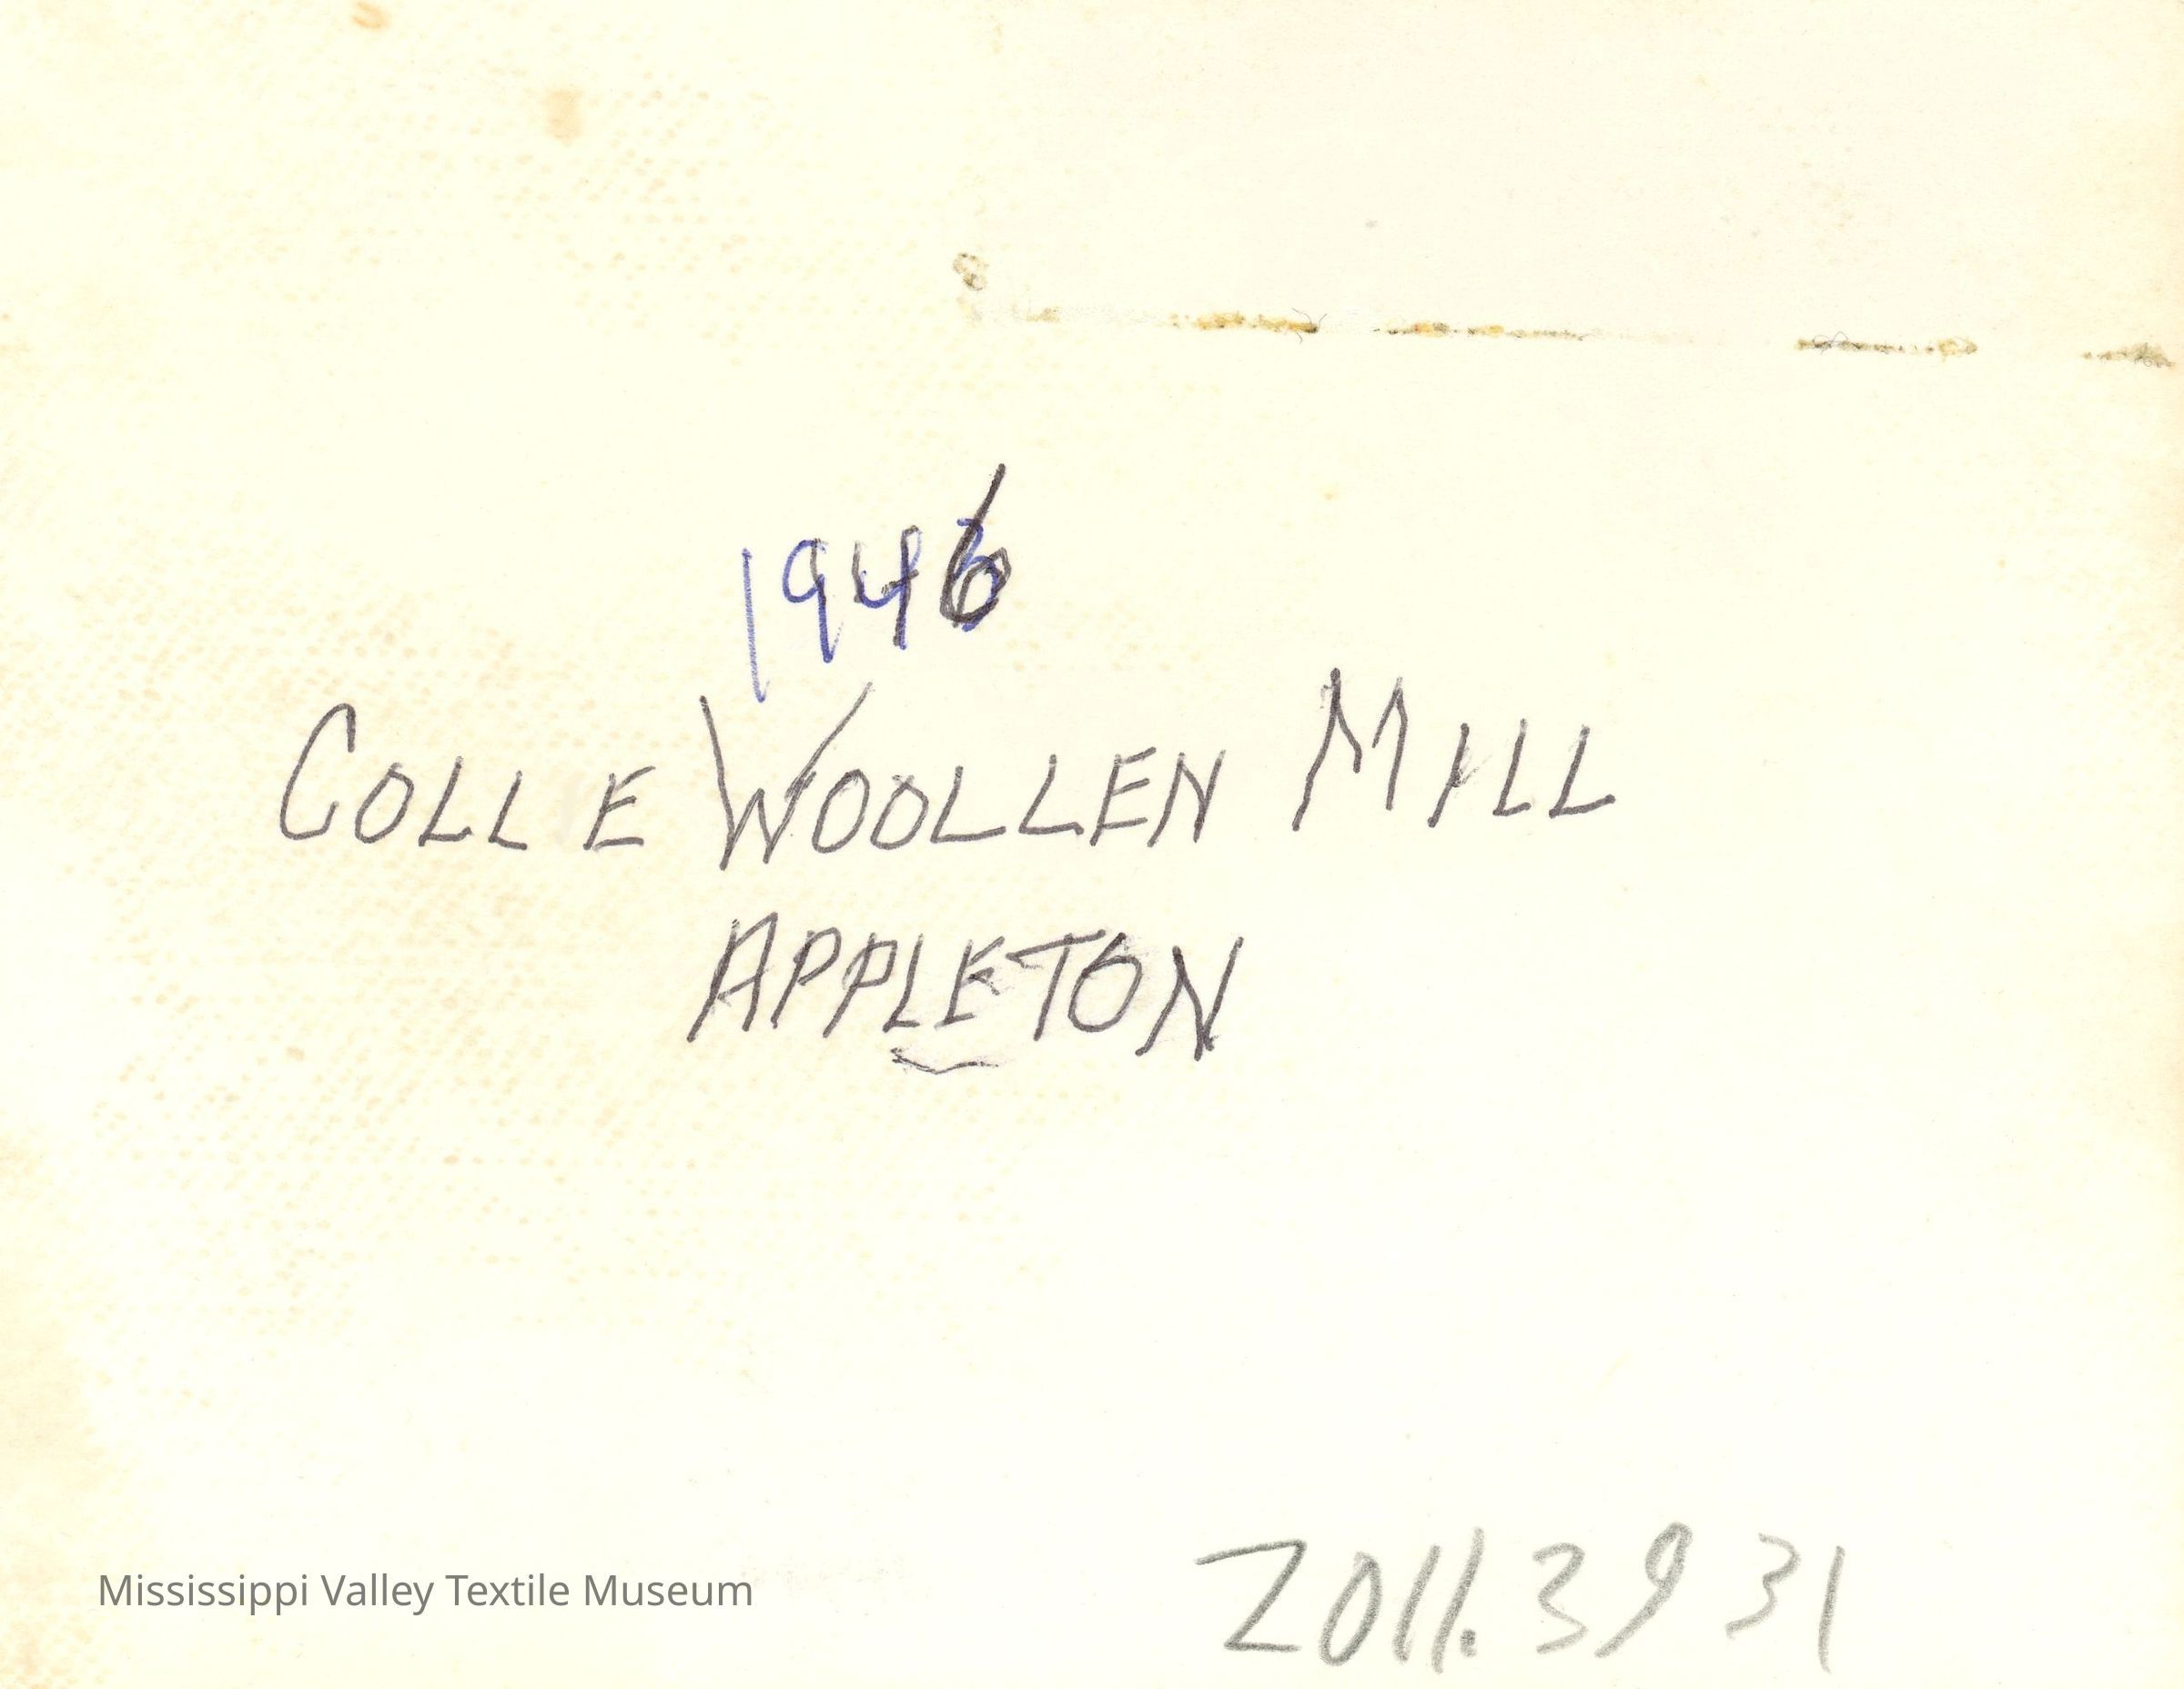 1946
COLL E WOOLLEN MILL
APPLETON
Mississippi Valley Textile Museum
2011.39 31